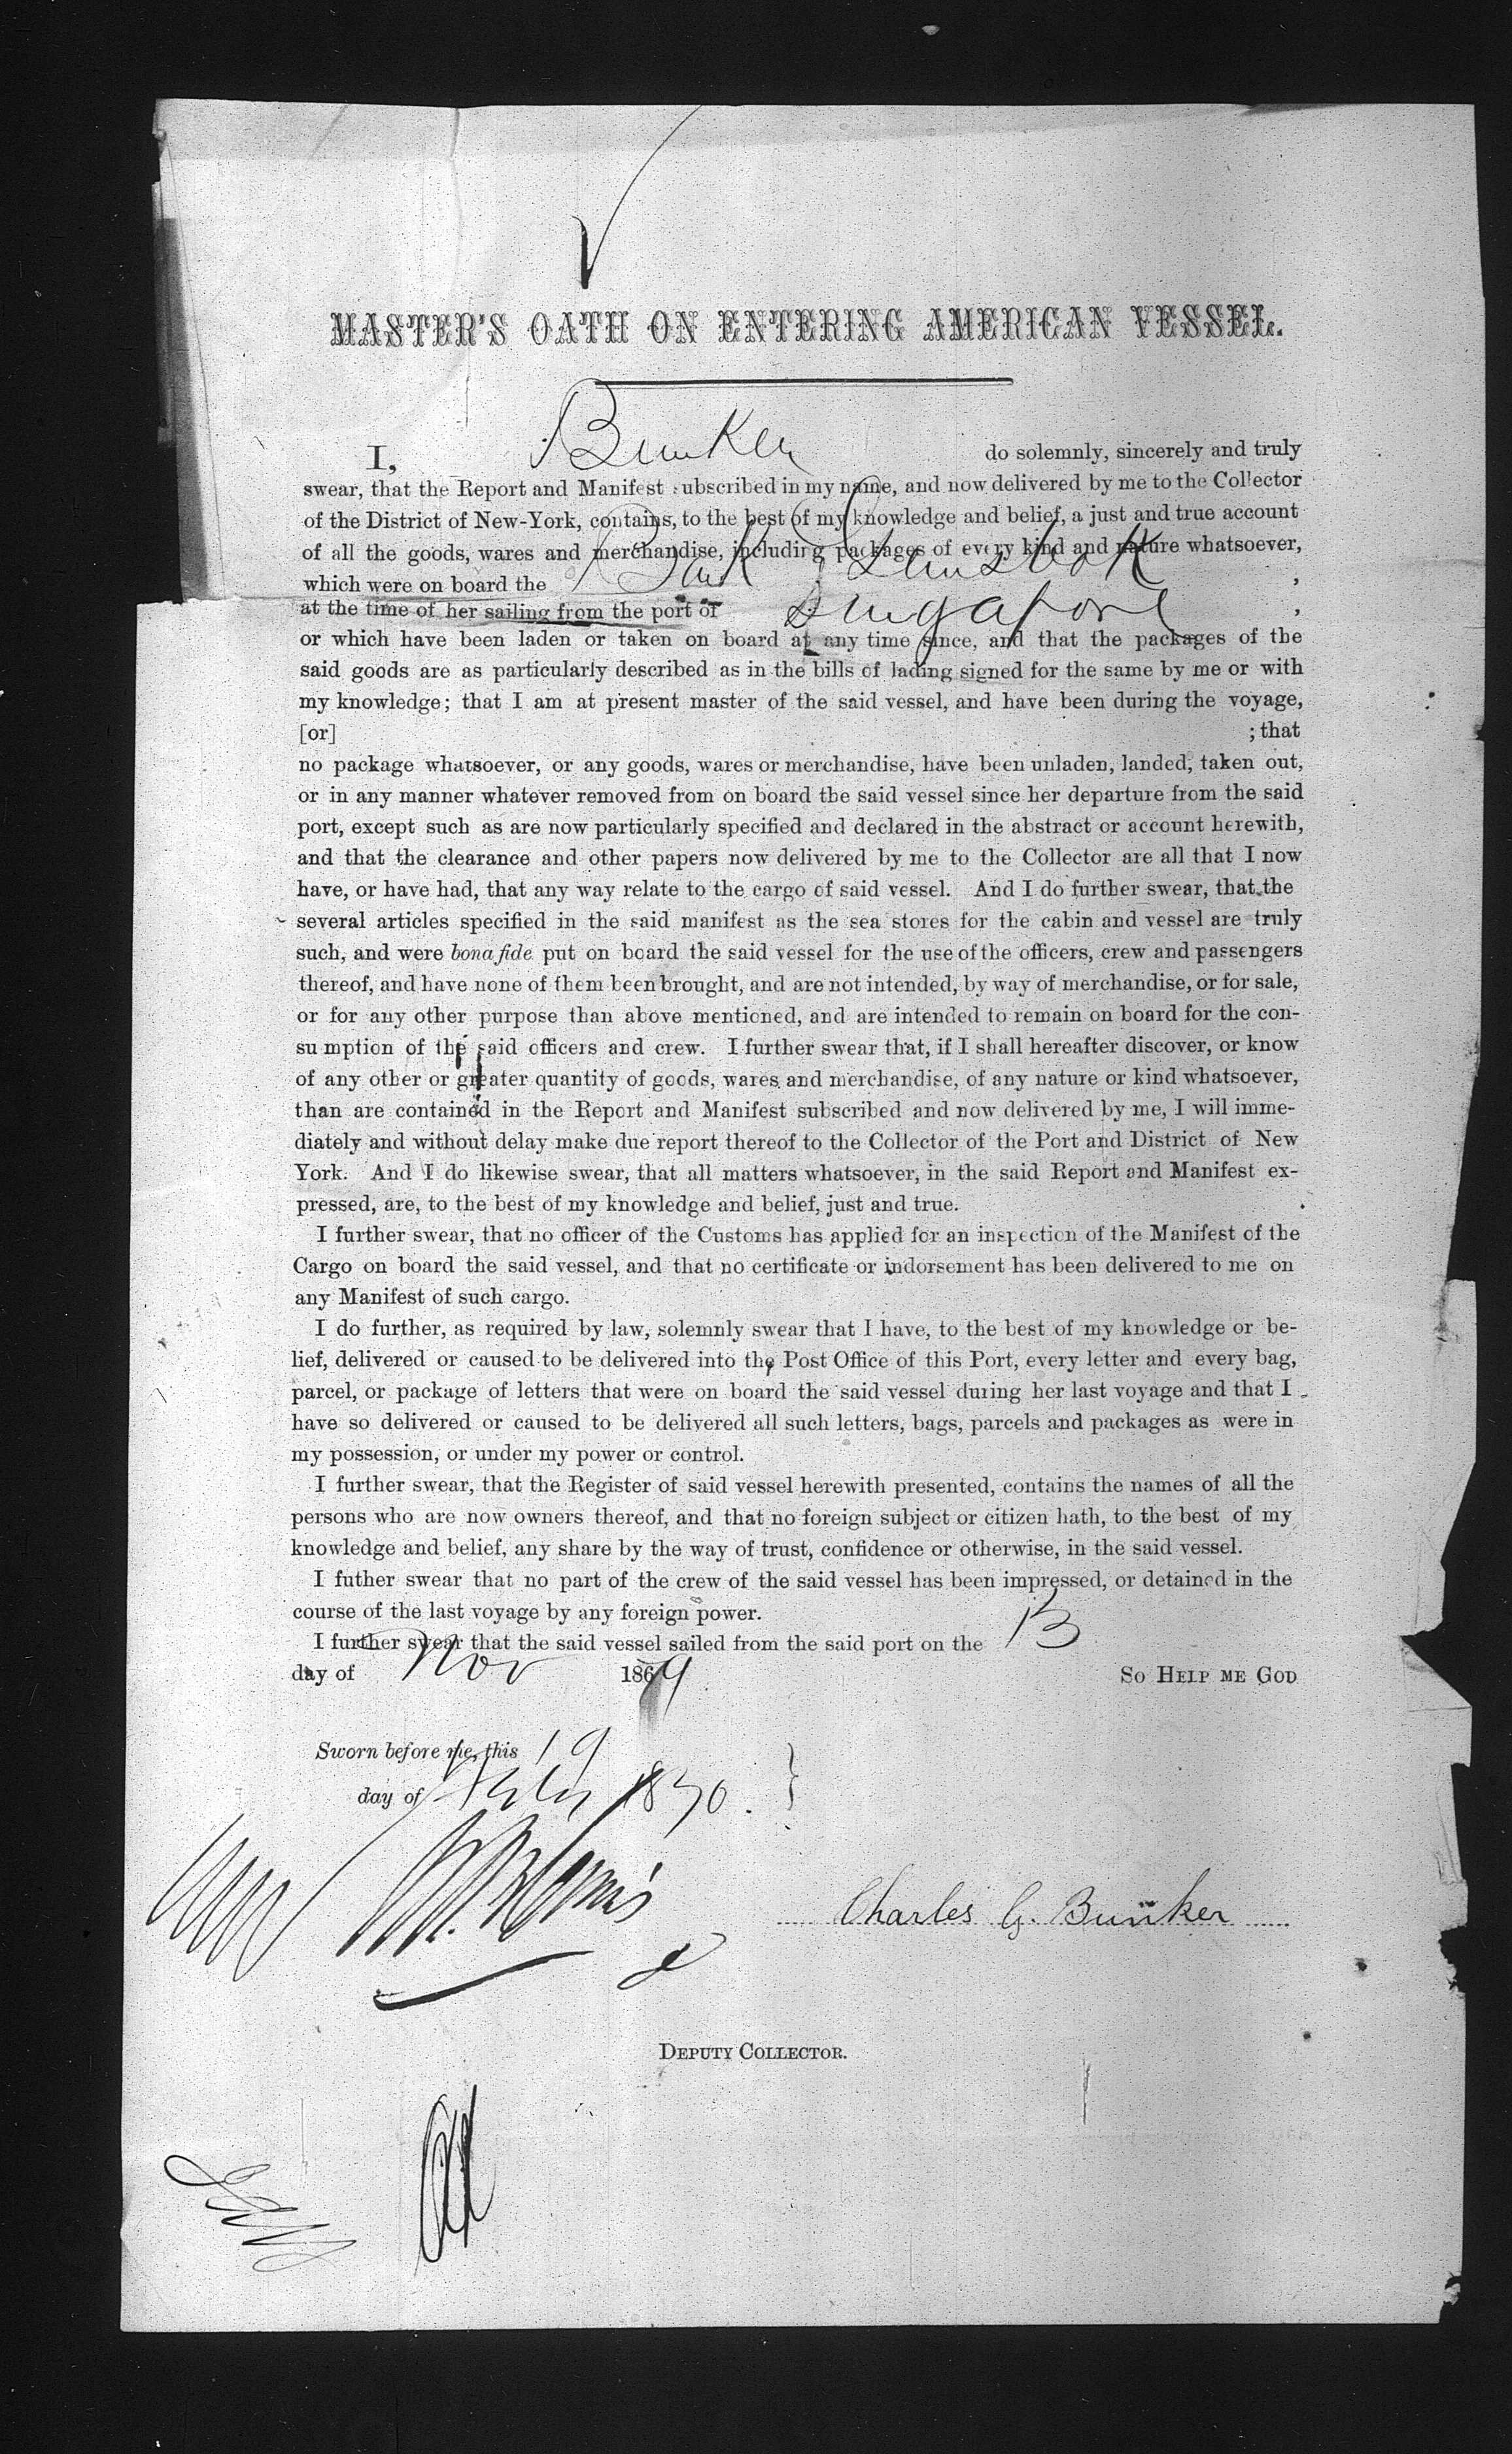 MASTER'S OATH ON ENTERING AMERICAN VESSEL.
I, Bunker do solemnly, sincerely and truly
swear, that the Report and Manifest subscribed in my name, and now delivered by me to the Collector
of the District of New-York, contains, to the best of my knowledge and belief, a just and true account
of all the goods, wares and merchandise, including packages of every kind and nature whatsoever,
which were on board the Bark ,
at the time of her sailing from the port of Singapore ,
or which have been laden or taken on board at any time since, and that the packages of the
said goods are as particularly described as in the bills of lading signed for the same by me or with
my knowledge; that I am at present master of the said vessel, and have been during the voyage,
[or] ; that
no package whatsoever, or any goods, wares or merchandise, have been unladen, landed, taken out,
or in any manner whatever removed from on board the said vessel since her departure from the said
port, except such as are now particularly specified and declared in the abstract or account herewith,
and that the clearance and other papers now delivered by me to the Collector are all that I now
have, or have had, that any way relate to the cargo of said vessel. And I do further swear, that the
several articles specified in the said manifest as the sea stores for the cabin and vessel are truly
such, and were bona fide put on board the said vessel for the use of the officers, crew and passengers
thereof, and have none of them been brought, and are not intended, by way of merchandise, or for sale,
or for any other purpose than above mentioned, and are intended to remain on board for the con-
sumption of the said officers and crew. I further swear that, if I shall hereafter discover, or know
of any other or greater quantity of goods, wares and merchandise, of any nature or kind whatsoever,
than are contained in the Report and Manifest subscribed and now delivered by me, I will imme-
diately and without delay make due report thereof to the Collector of the Port and District of New
York. And I do likewise swear, that all matters whatsoever, in the said Report and Manifest ex-
pressed, are, to the best of my knowledge and belief, just and true.
I further swear, that no officer of the Customs has applied for an inspection of the Manifest of the
Cargo on board the said vessel, and that no certificate or indorsement has been delivered to me on
any Manifest of such cargo.
I do further, as required by law, solemnly swear that I have, to the best of my knowledge or be-
lief, delivered or caused to be delivered into the Post Office of this Port, every letter and every bag,
parcel, or package of letters that were on board the said vessel during her last voyage and that I
have so delivered or caused to be delivered all such letters, bags, parcels and packages as were in
my possession, or under my power or control.
I further swear, that the Register of said vessel herewith presented, contains the names of all the
persons who are now owners thereof, and that no foreign subject or citizen hath, to the best of my
knowledge and belief, any share by the way of trust, confidence or otherwise, in the said vessel.
I futher swear that no part of the crew of the said vessel has been impressed, or detained in the
course of the last voyage by any foreign power.
I further swear that the said vessel sailed from the said port on the 13
day of Nov 1869 SO HELP ME GOD
Sworn before me, this 19
day of 1870.
Charles G. Bunker
DEPUTY COLLECTOR.